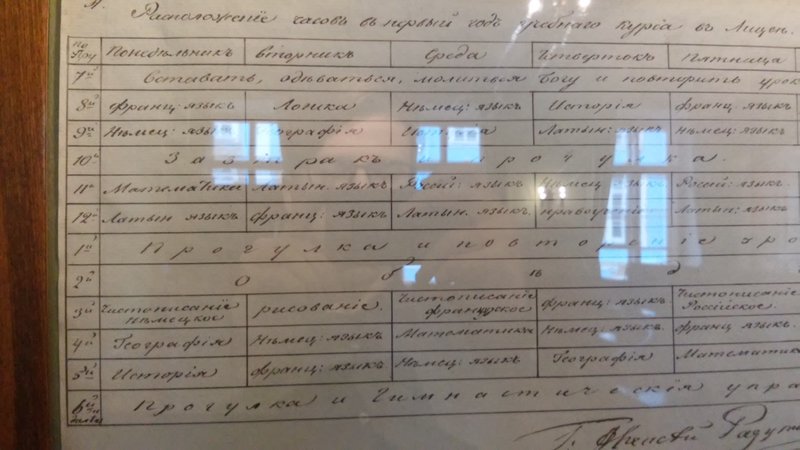 Расположеніе часовъ въ первый годъ учебнаго курса въ Лицеѣ.
по Полу Понедѣльникъ Вторникъ Среда Четвертокъ Пятница
7й Вставать, одѣваться, молиться Богу и повторить урок
8й Франц: языкъ Логика Нѣмец: языкъ Исторія Франц. языкъ
9й Нѣмец: языкъ Географія Исторія Латын: языкъ Нѣмец: языкъ
10й Завтракъ и прогулка.
11й Математика Латын. языкъ Россій: языкъ Нѣмец: языкъ Россій: языкъ.
12й Латын языкъ Франц: языкъ Латын. языкъ нравоученіе Латын: языкъ
1й Прогулка и повтореніе уро
2й Обѣд
3й Чистописаніе Нѣмецкое рисованіе. Чистописаніе французское Франц: языкъ. Чистописаніе Россійское.
4й Географія Нѣмец: языкъ Математика Нѣмец: языкъ. Франц языкъ.
5й Исторія Франц: языкъ Нѣмец: языкъ Географія Математика
6й Прогулка и Гимнастическія упра